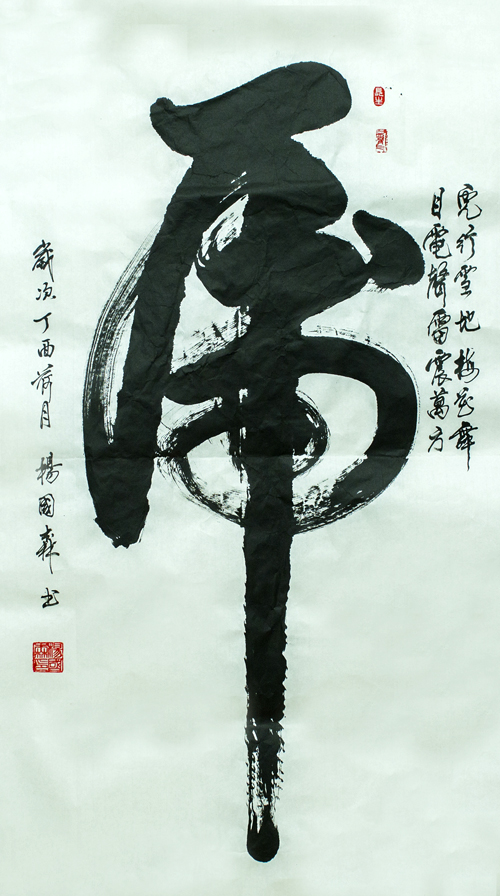 虎
虎行雪地梅花舞
目電聲雷震萬方
歲次丁酉荷月 楊國森书